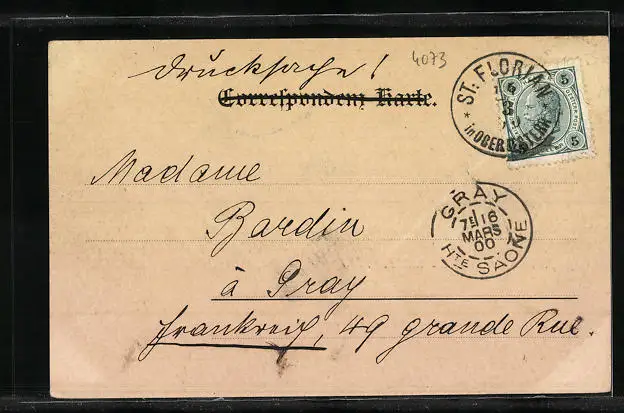 4073
Drucksache!
Correspondenz-Karte.
ST. FLORIAN
in OBER
5 5
5 5
Madame
Bardin
GRAY
7E 16
MARS
00
HTE SAONE
à Gray
Frankreich, 49 grande Rue.